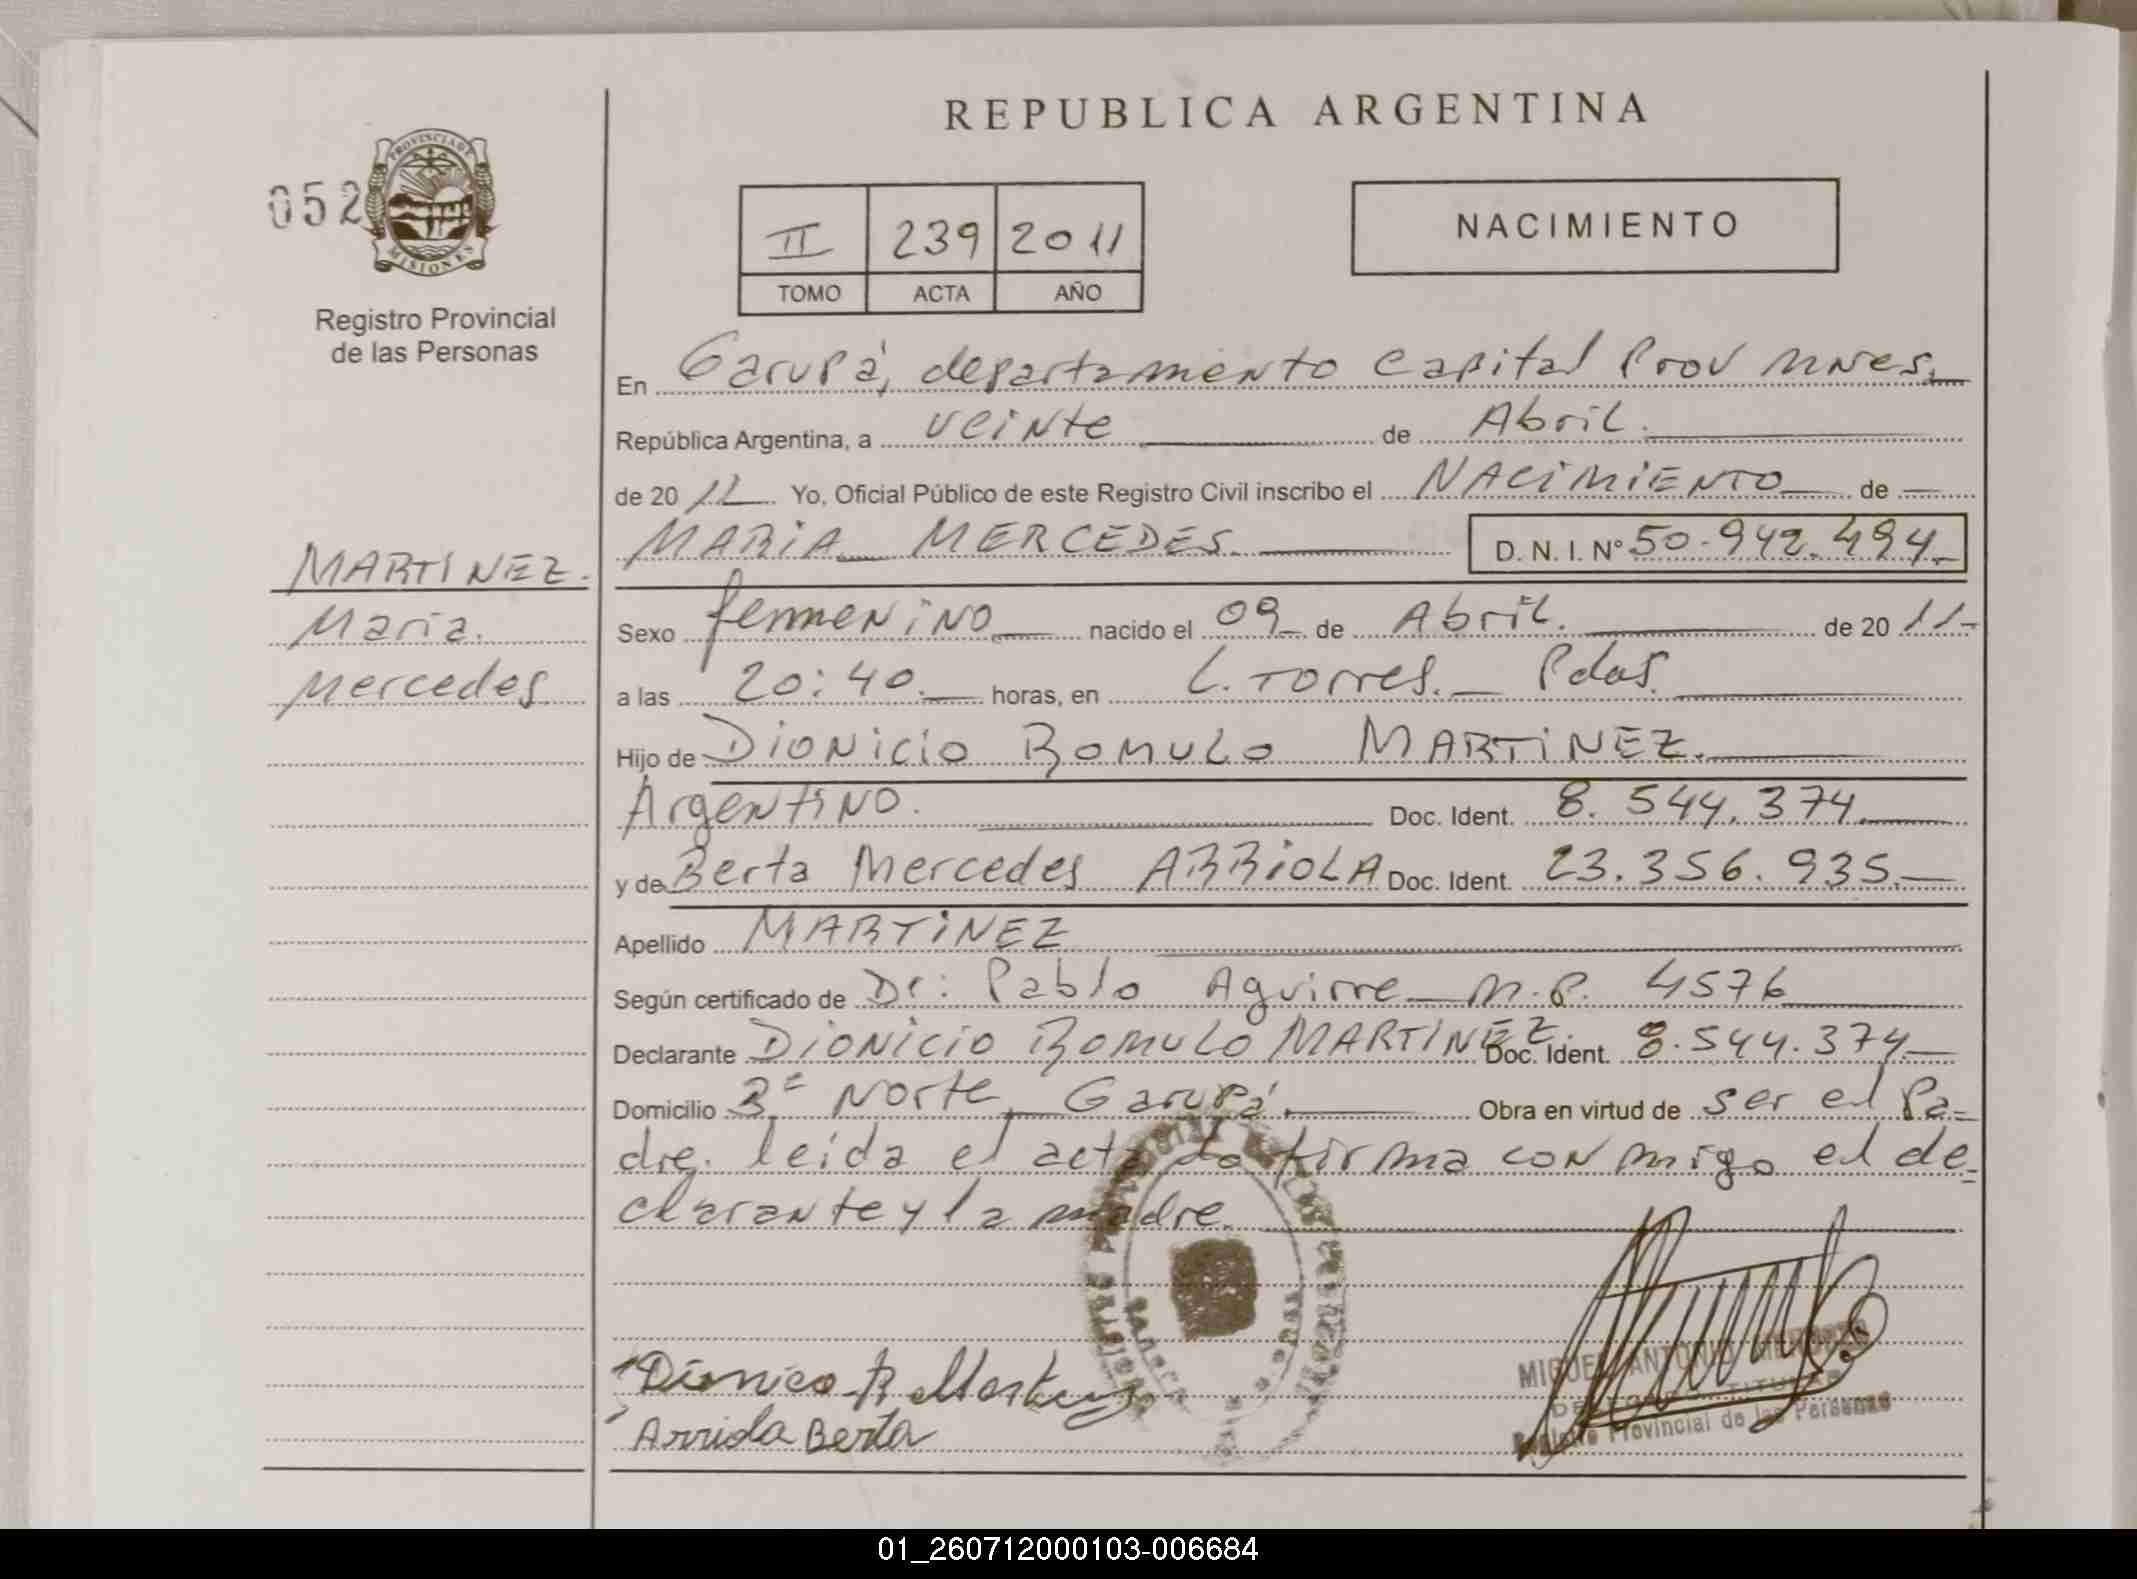 REPUBLICA ARGENTINA
052
PROVINCIA DE
MISIONES
Registro Provincial
de las Personas
II 239 2011
TOMO ACTA AÑO
NACIMIENTO
En Garupá, departamento Capital Prov Mnes.
República Argentina, a veinte de Abril.
de 20 11 Yo, Oficial Público de este Registro Civil inscribo el NACIMIENTO de
MARIA MERCEDES. D. N. I. Nº 50.942.494.
MARTINEZ.
Maria.
Mercedes.
Sexo femenino nacido el 09 de Abril. de 20 11-
a las 20:40. horas, en L. Torres. Pdas.
Hijo de Dionicio Romulo MARTINEZ.
Argentino. Doc. Ident. 8.544.374.
y de Berta Mercedes ARRIOLA Doc. Ident. 23.356.935.
Apellido MARTINEZ
Según certificado de Dr: Pablo Aguirre M.P. 4576
Declarante Dionicio Romulo MARTINEZ. Doc. Ident. 8.544.374
Domicilio 3ª Norte, Garupá. Obra en virtud de ser el Pa-
dre. leida el acta la firma con migo el de-
clarante y la madre.
Dionico R Martinez
Arriola Berta
MIGUEL ANTONIO
TITULAR
Registro Provincial de las Personas
01_260712000103-006684